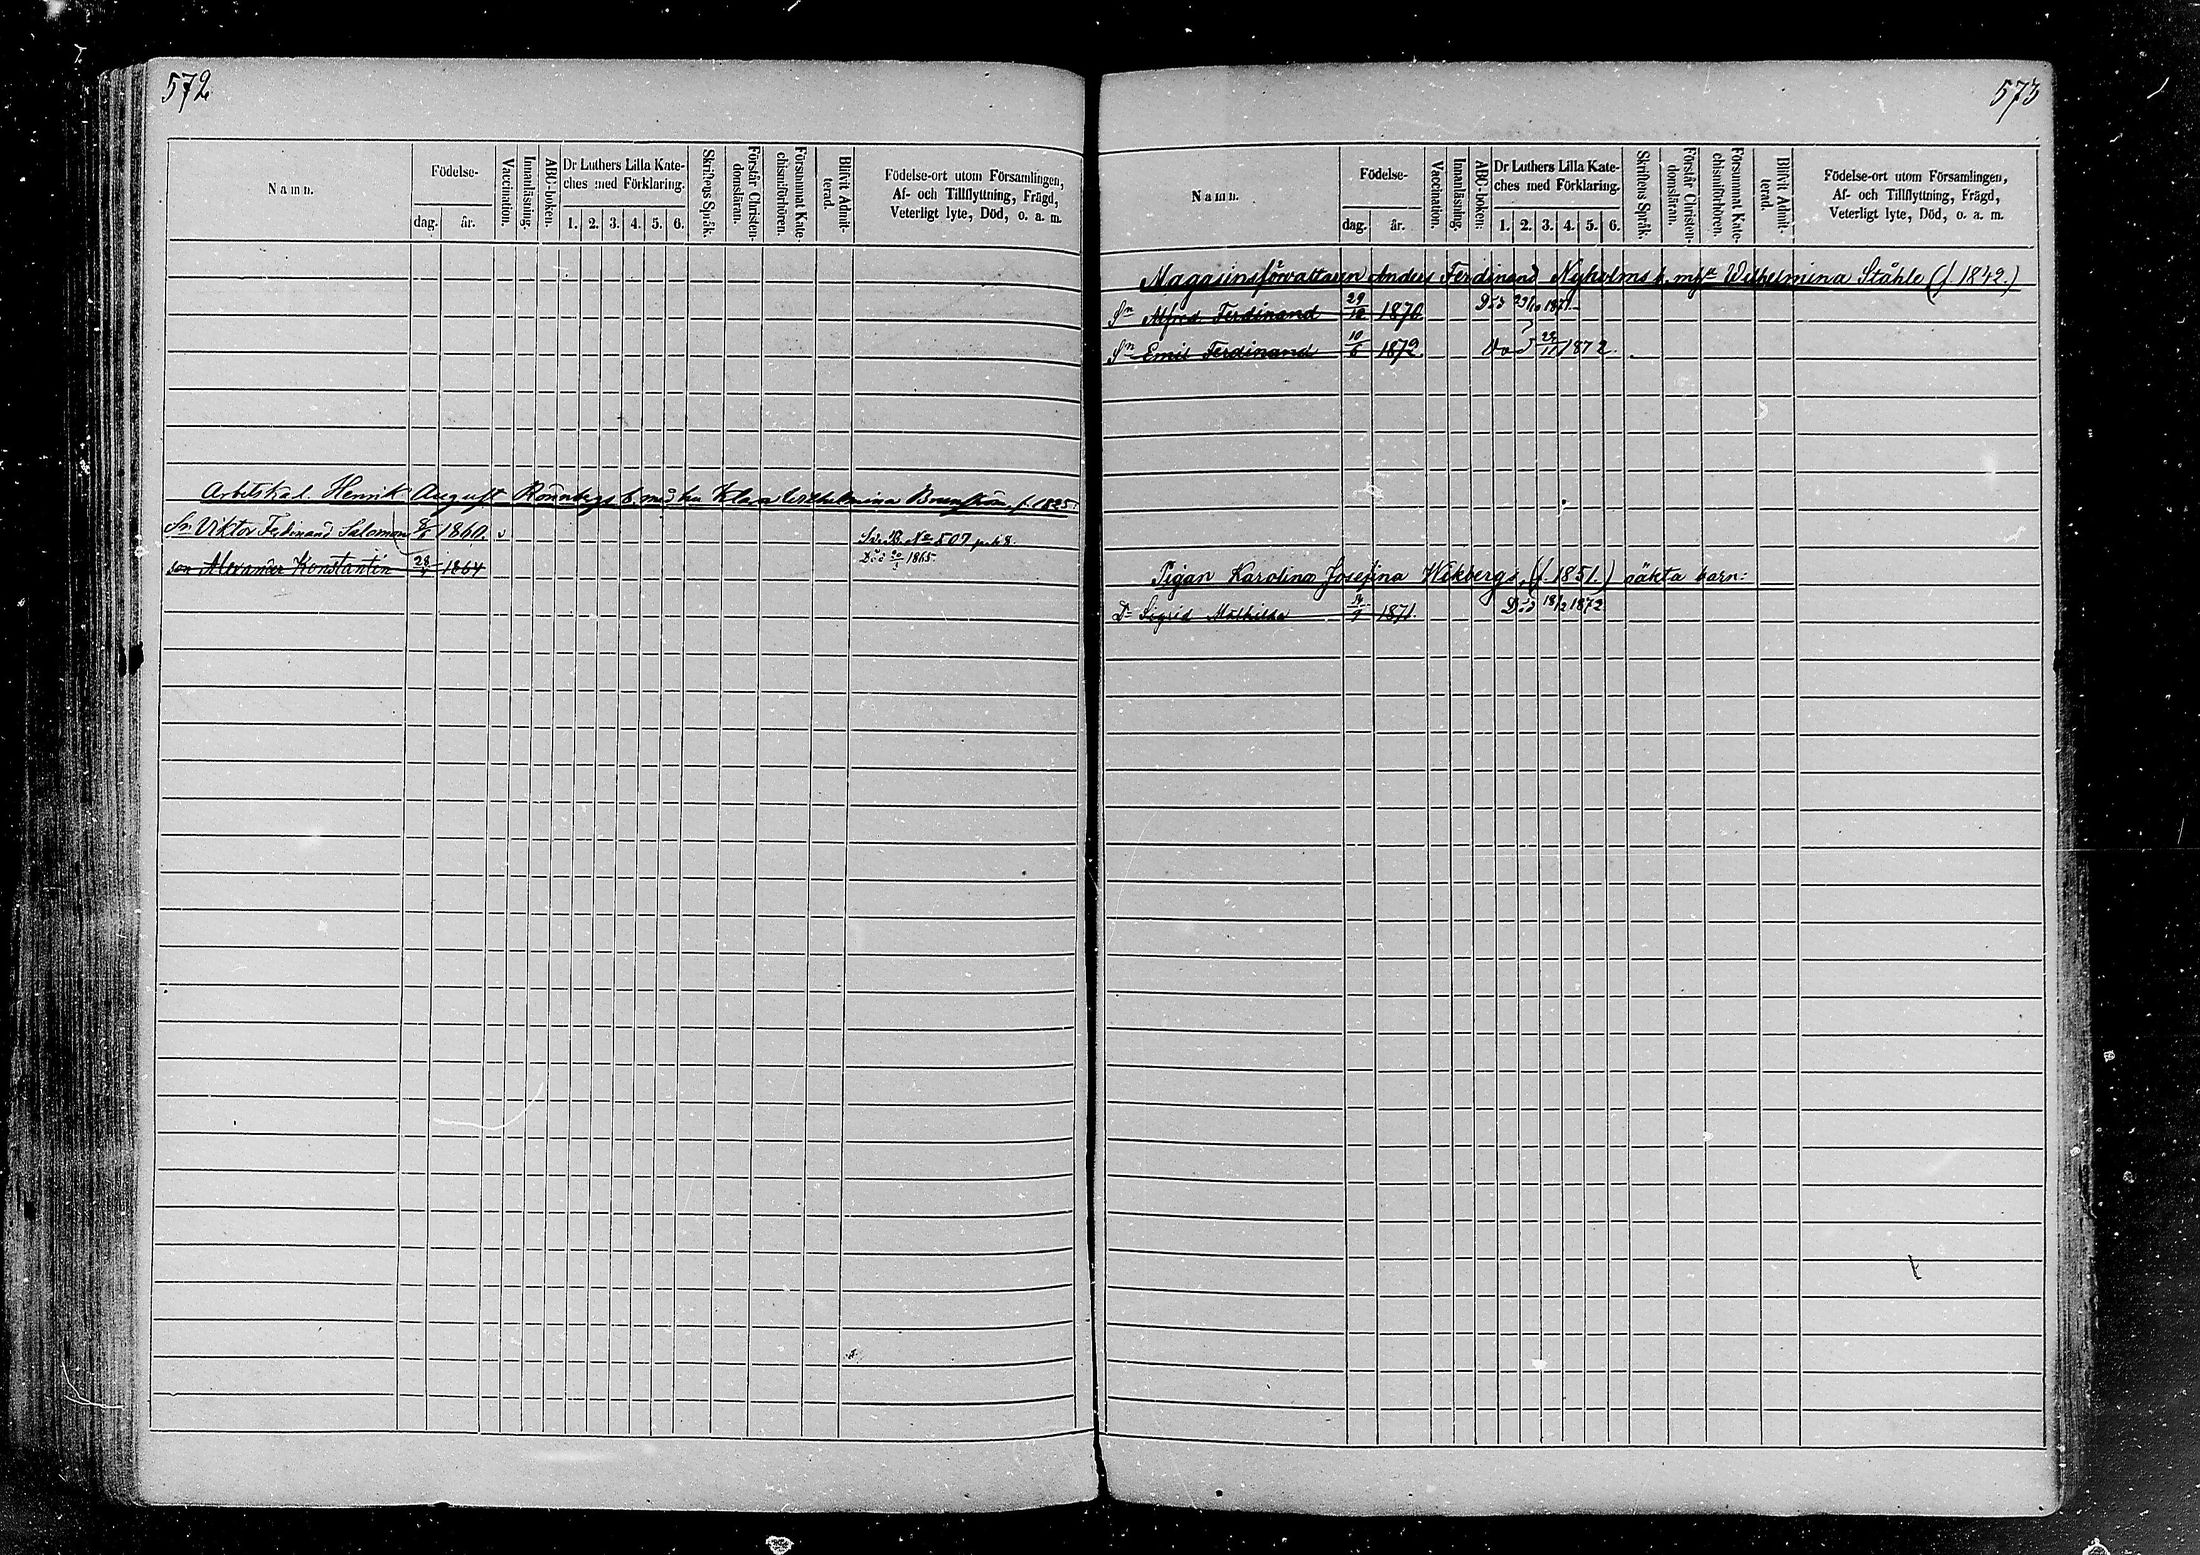 572
Namn.
Födelse-
dag.
år.
Vaccination.
Innanläsning.
ABC-boken.
Dr Luthers Lilla Kate-
ches med Förklaring.
1. 2. 3. 4. 5. 6.
Skriftens Språk.
Förstår Christen-
domsläran.
Försummat Kate-
chismiförhören.
Blifvit Admit-
terad.
Födelse-ort utom Församlingen,
Af- och Tillflyttning, Frägd,
Veterligt lyte, Död, o. a. m.
Arbetskal. Henrik August Rönnbergs b. med hu Klara Wilhelmina f. 1825.
Sn Viktor Ferdinand Salomon 1860. v
Se B. No 507
son Alexander Konstantin 1864 Död 1865.
573
Namn.
Födelse-
dag.
år.
Vaccination.
Innanläsning.
ABC-boken.
Dr Luthers Lilla Kate-
ches med Förklaring.
1. 2. 3. 4. 5. 6.
Skriftens Språk.
Förstår Christen-
domsläran.
Försummat Kate-
chismiförhören.
Blifvit Admit-
terad.
Födelse-ort utom Församlingen,
Af- och Tillflyttning, Frägd,
Veterligt lyte, Död, o. a. m.
Magasinsförvaltaren Anders Ferdinand Nyholms b. m. Wilhelmina Ståhle (f. 1842.)
Sn Alfred Ferdinand 29/10 1870. Död 23/10 1871.
Sn Emil Ferdinand 10/6 1872. Död 22/11 1872.
Pigan Karolina Josefina Wikbergs, (f. 1851.) oäkta barn:
Dr Sigrid Mathilda 14/9 1871. Död 18/2 1872